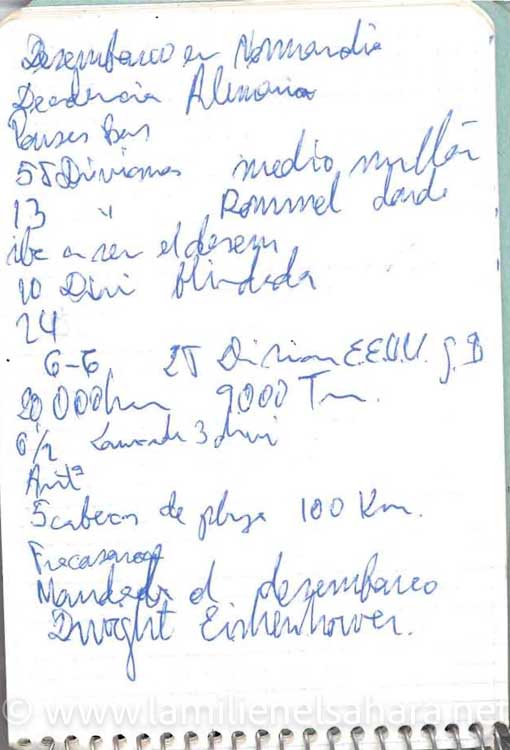 Desembarco en Normandia
Decadencia Alemania
Paises Bas
58 Divisiones medio millón
13 " Rommel donde
iba a ser el desem
10 Divi blindada
24
6-6 25 Division E.E.U.U. G.B
20,000 hm 9000 Tn.
6 1/2 3 divi
Artª
5 cabezas de playa 100 Km.
Fracasaron
Mandaba el desembarco
Dwight Eishenhower.
© www.lamilienelsahara.net